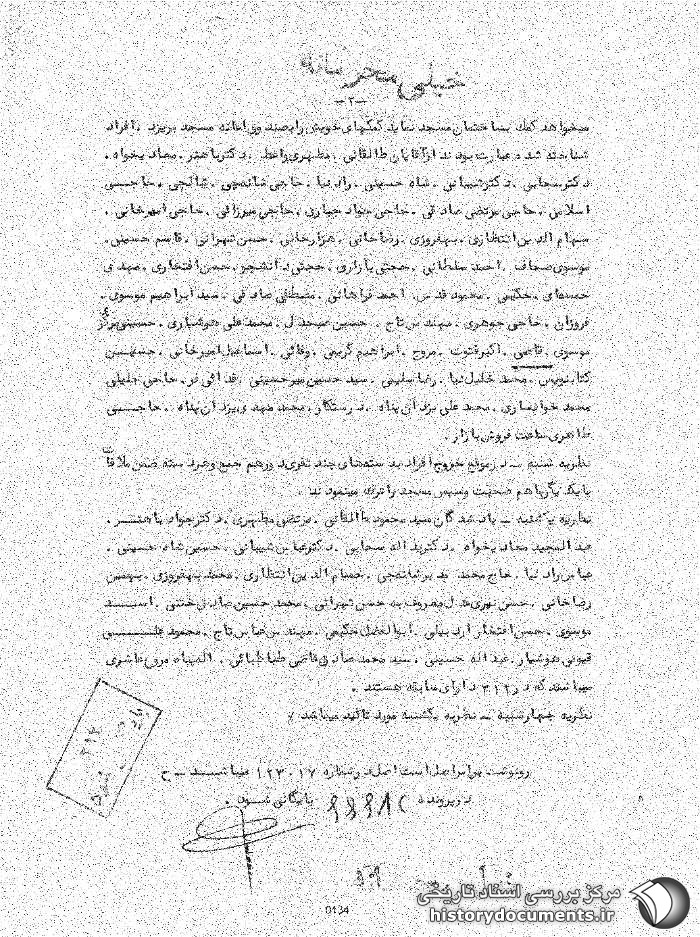 خیلی محرمانه
-۲-
میخواهد کمک بساختمان مسجد نماید کمکهای خویش را بصندوق اعانه مسجد بریزد . افراد
شناخته شده عبارت بودند از آقایان طالقانی . مطهری واعظ . دکتر باهنر . معادیخواه .
دکتر سحابی . دکتر شیبانی . شاه حسینی . راد نیا . حاجی مانیان . حاجی
اسلامی . حاجی مرتضی صادقی . حاجی جواد . حاجی میرزائی . حاجی امیرخانی .
حسام الدین انتظاری . بهفروزی . رضاخانی . هزارخانی . حسن تهرانی . قاسم حسینی .
موسوی صحاف . احمد سلطانی . حجتی بازاری . حجتی دانشجو . حسن افتخاری . مهدی
خمسه‌ای . حکیمی . محمود قدس . احمد فراهانی . مصطفی صادقی . سید ابراهیم موسوی .
فروزان . حاجی جوهری . مهندس تاج . حسین صیحدل . محمد علی هوشیاری . حسینی مرکزی
موسوی . قاضی . اکبر فتوت . مروج . ابراهیم کریمی . وفائی . اسماعیل امیرخانی .
کتابنویس . محمد خلیل نیا . رضا سلیمی . سید حسین میرحسینی . فدائی فر . حاجی جلیلی
محمد خوانساری . محمد علی یزدان پناه . درستکار . محمد مهدی یزدان پناه . حاج
طاهری ساعت فروش بازار .
نظریه شنبه ـ در موقع خروج افراد بدسته‌های چند نفری دورهم جمع و هردسته ضمن ملاقات
با یکدیگر باهم صحبت و سپس مسجد را ترک مینمودند .
نظریه یکشنبه ـ یادشدگان سید محمود طالقانی . مرتضی مطهری . دکتر جواد باهنر .
عبدالمجید معادیخواه . دکتر یداله سحابی . دکتر عباس شیبانی . حسین شاه حسینی .
عباس راد نیا . حاج محمد . حسام الدین انتظاری . محمد بهفروزی . بهمن
رضاخانی . حسن معروف به حسن تهرانی . محمد حسین صادق . اسد
موسوی . حسن افتخار اردبیلی . ابوالفضل حکیمی . مهندس عباس تاج . محمود
قیومی هوشیار . عبداله حسینی . سید محمد صادق قاضی طباطبائی .
میباشند که در ۳۱۲ دارای سابقه هستند .
نظریه چهارشنبه ـ نظریه یکشنبه مورد تائید میباشد /
رونوشت برابر اصل است اصل در شماره ۱۲۳۰۱۷ میباشد ـ ح
در پرونده بایگانی شود .
۳۱۲
0134
مرکز بررسی اسناد تاریخی
historydocuments.ir